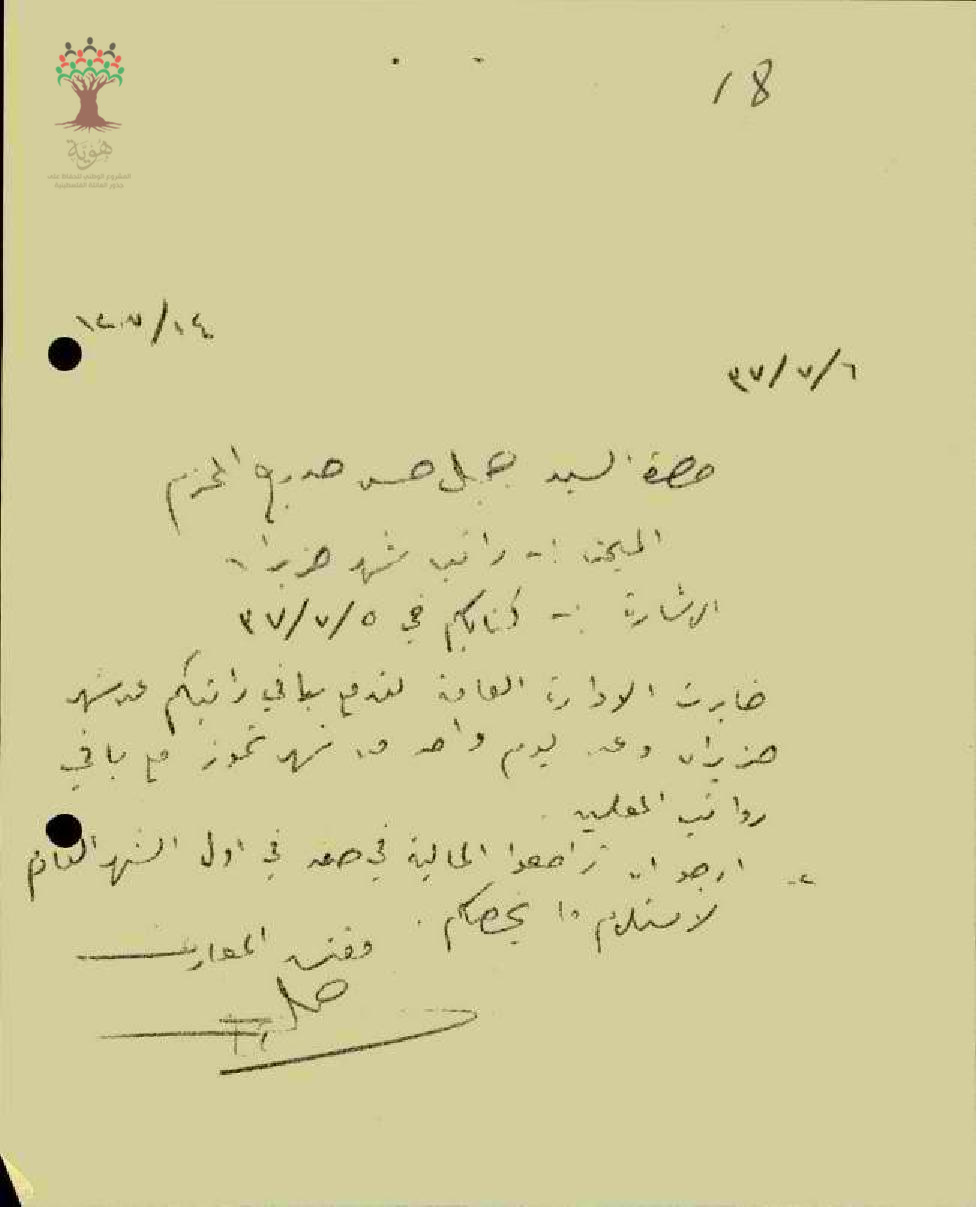 18
هوية
المشروع الوطني للحفاظ على
جذور العائلة الفلسطينية
٣٧/٧/٦
حضرة السيد حسن المحترم
المبحث :- راتب شهر حزيران
الاشارة :- كتابكم في ٣٧/٧/٥
خابرت الادارة العامة لتدفع باقي راتبكم عن شهر
حزيران وعن يوم واحد من شهر تموز مع باقي
رواتب المعلمين .
٢- ارجو ان تراجعوا المالية في صفد في اول الشهر القادم
لاستلام ما يخصكم .
مفتش المعارف